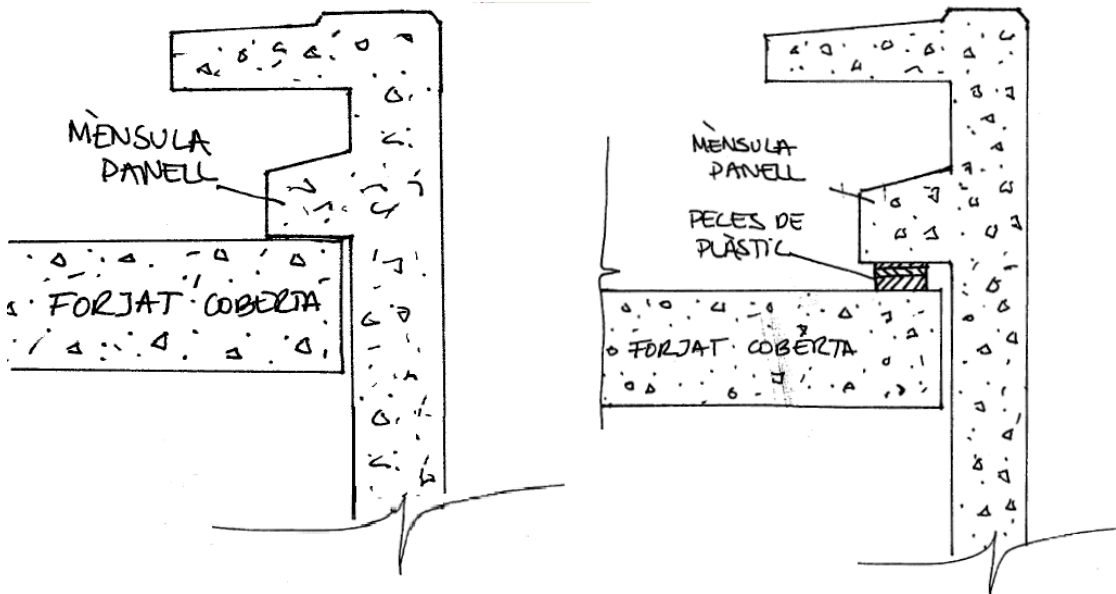 MÈNSULA
PANELL
FORJAT COBERTA
MÈNSULA
PANELL
PECES DE
PLÀSTIC
FORJAT COBERTA